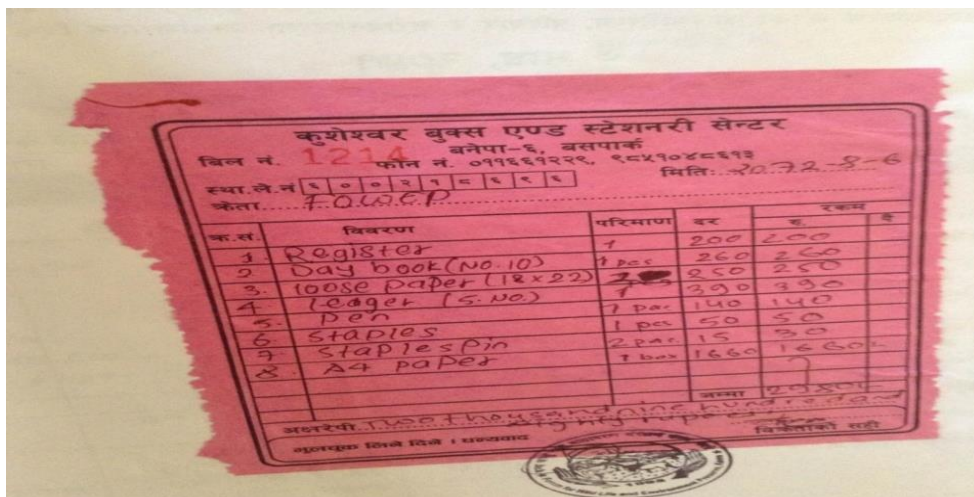 कुशेश्वर बुक्स एण्ड स्टेशनरी सेन्टर
बनेपा-६, बसपार्क
बिल नं. 1214 फोन नं. ०११६६१२२९, ९८५१०४८६१३
स्था.ले.नं ६ ० ० २ १ ८ ६ ९ ६ मिति: 2072-8-6
क्रेता
क्र.सं. विवरण परिमाण दर रकम
रु. पै
1 Register 1 200 200
2 Day book (NO.10) 1 pcs 260 260
3. loose paper (18x22) 250 250
4. leager (S.NO.) 1 390 390
5. Pen 1 pac 140 140
6. Staples 1 pcs 50 50
7 Staples pin 2 pac. 15 30
8. A4 paper 1 box 1660 1660
जम्मा
अक्षरेपी Two thousand nine hundred and
Eighty
भूलचूक लिने दिने । धन्यवाद विक्रेताको सही